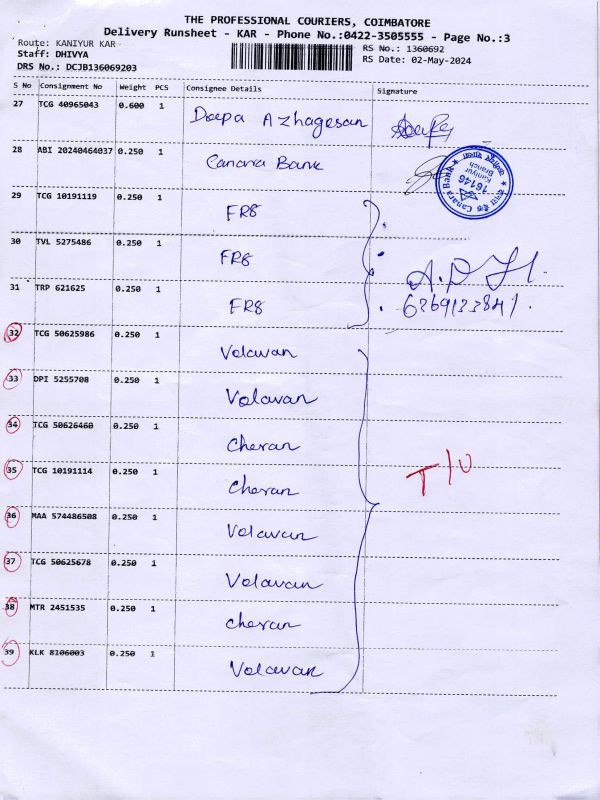 THE PROFESSIONAL COURIERS, COIMBATORE
Delivery Runsheet - KAR - Phone No.:0422-3505555 - Page No.:3
Route: KANIYUR KAR
RS No.: 1360692
Staff: DHIVYA
RS Date: 02-May-2024
DRS No.: DCJB136069203
S No Consignment No Weight PCS Consignee Details Signature
27 TCG 40965043 0.600 1 Deepa Azhagesan
28 ABI 20240464037 0.250 1 Canara Bank
Canara Bank
Kaniyur
Branch
16146
29 TCG 10191119 0.250 1 FR8
30 TVL 5275486 0.250 1 FR8
31 TRP 621625 0.250 1 FR8
32 TCG 50625986 0.250 1 Velavan
33 DPI 5255708 0.250 1 Velavan
34 TCG 50626460 0.250 1 Cheran
35 TCG 10191114 0.250 1 Cheran
T/U
36 MAA 574486508 0.250 1 Velavan
37 TCG 50625678 0.250 1 Velavan
38 MTR 2451535 0.250 1 Cheran
39 KLK 8106003 0.250 1 Velavan